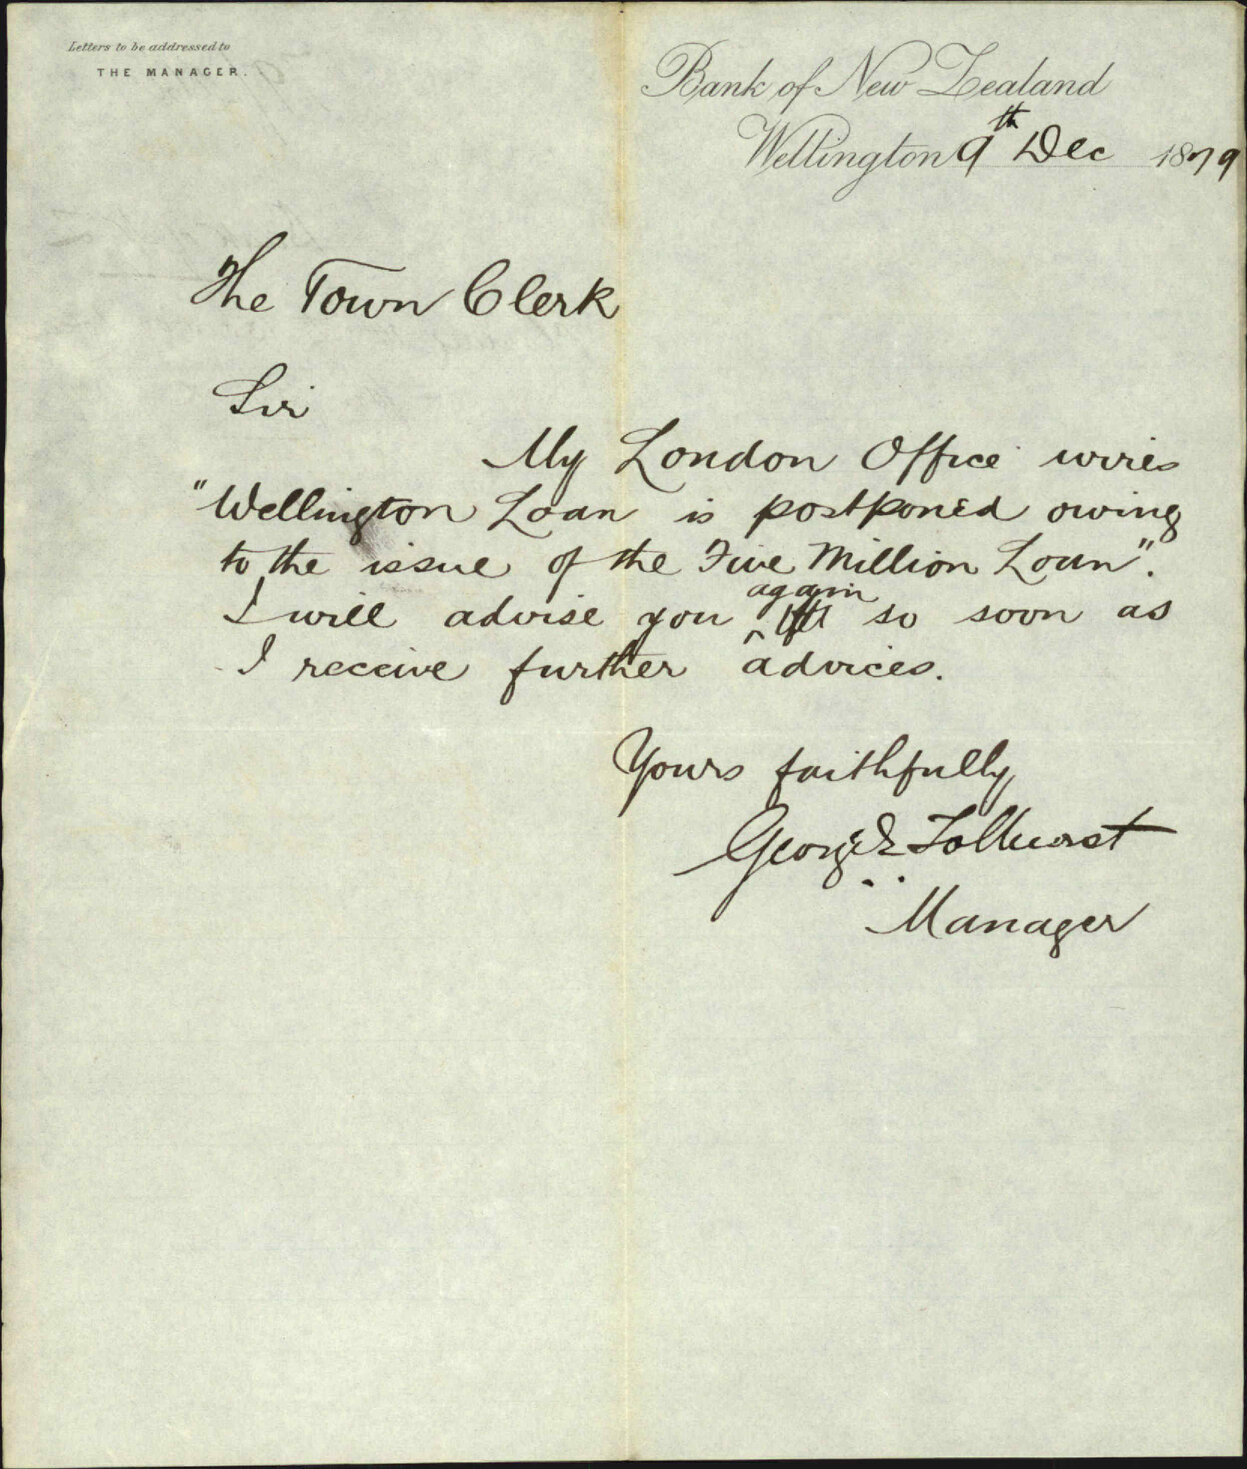 Letters to be addressed to
THE MANAGER.
Bank of New Zealand
Wellington 9th Dec 1879
The Town Clerk
Sir
My London Office wires
"Wellington Loan is postponed owing
to the issue of the Five Million Loan".
I will advise you again so soon as
I receive further advices.
Yours faithfully
George E Tolhurst
Manager